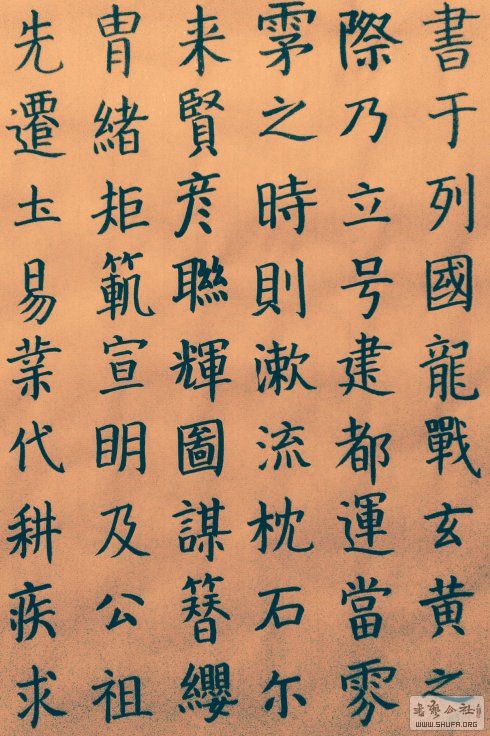 書于列國龍戰玄黃之
際乃立号建都運當雰
雺之時則漱流枕石尒
来賢彦聯輝圖謀簮纓
冑緒矩範宣明及公祖
先遷土易業代耕疾求
WWW.SHUFA.ORG